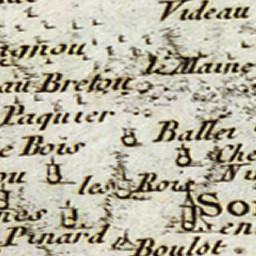 Videau
agnou
le Maine
au Bretou
Paquier
Ballet
e Bois
Che
ou
les Rois
Sor
nes
en
Pinard
Boulot